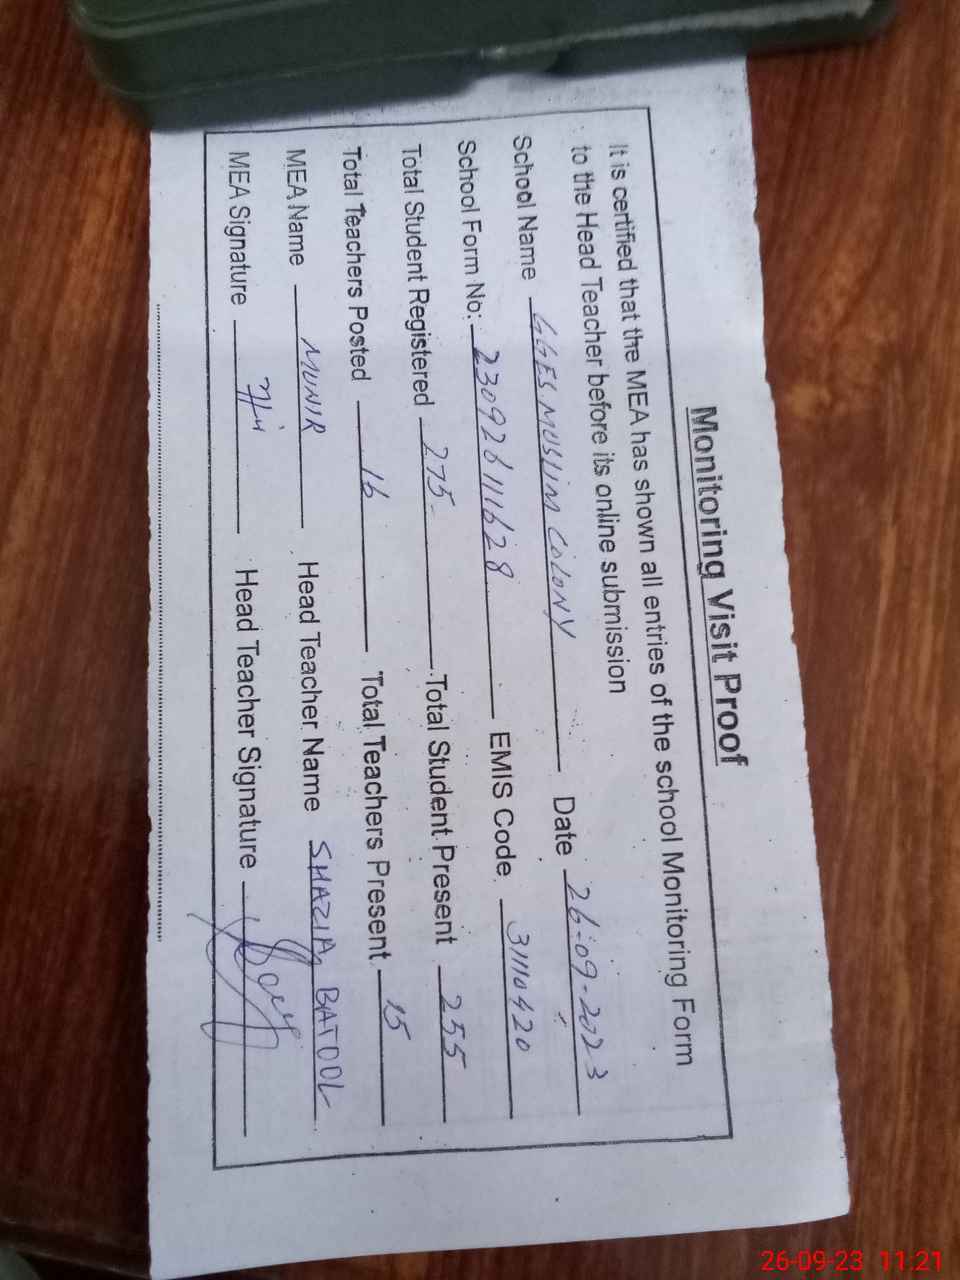 Monitoring Visit Proof
It is certified that the MEA has shown all entries of the school Monitoring Form
to the Head Teacher before its online submission
School Name GGES MUSLIM COLONY Date 26-09-2023
School Form No: 230926111628 EMIS Code 31110420
Total Student Registered 275 Total Student Present 255
Total Teachers Posted 16 Total Teachers Present 15
MEA Name MUNIR Head Teacher Name SHAZIA BATOOL
MEA Signature Head Teacher Signature
26-09-23 11:21